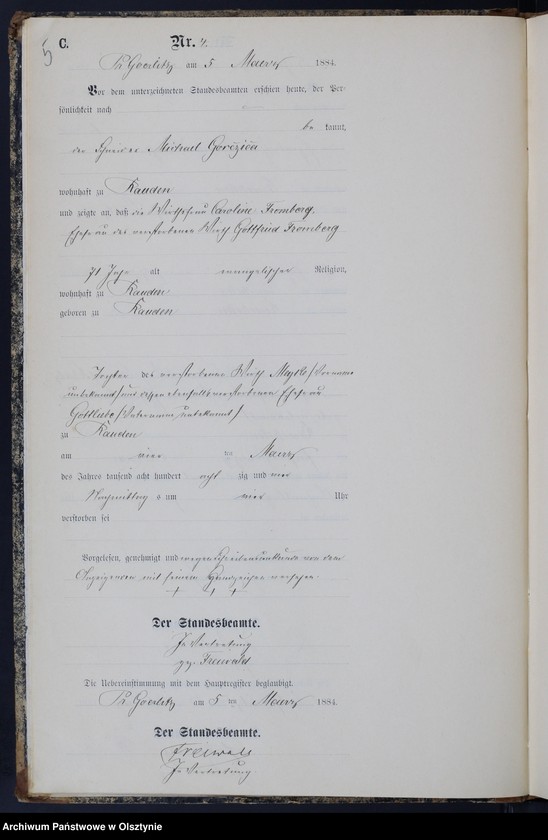 5
C.
Nr. 4.
Pr. Goerlitz am 5 Maerz 1884.
Vor dem unterzeichneten Standesbeamten erschien heute, der Per-
sönlichkeit nach
be kannt,
der Michael
wohnhaft zu Rauden
und zeigte an, daß die Wirthsfrau Caroline Fromberg,
Ehefrau des verstorbenen Wirth Gottfried Fromberg
71 Jahr alt evangelischer Religion,
wohnhaft zu Rauden
geboren zu Rauden
Tochter des verstorbenen Wirth (Vorname
unbekannt) und dessen ebenfalls verstorbenen Ehefrau
Gottliebe (Vatername unbekannt)
zu Rauden
am vier ten Maerz
des Jahres tausend acht hundert acht zig und vier
Nachmittag s um vier Uhr
verstorben sei
Vorgelesen, genehmigt und wegen Schreibensunkunde von dem
Anzeigenden mit seinem Handzeichen versehen.
+ + +
Der Standesbeamte.
In Vertretung
gez. Freiwald
Die Uebereinstimmung mit dem Hauptregister beglaubigt.
Pr. Goerlitz am 5 ten Maerz 1884.
Der Standesbeamte.
Freiwald
In Vertretung
Archiwum Państwowe w Olsztynie